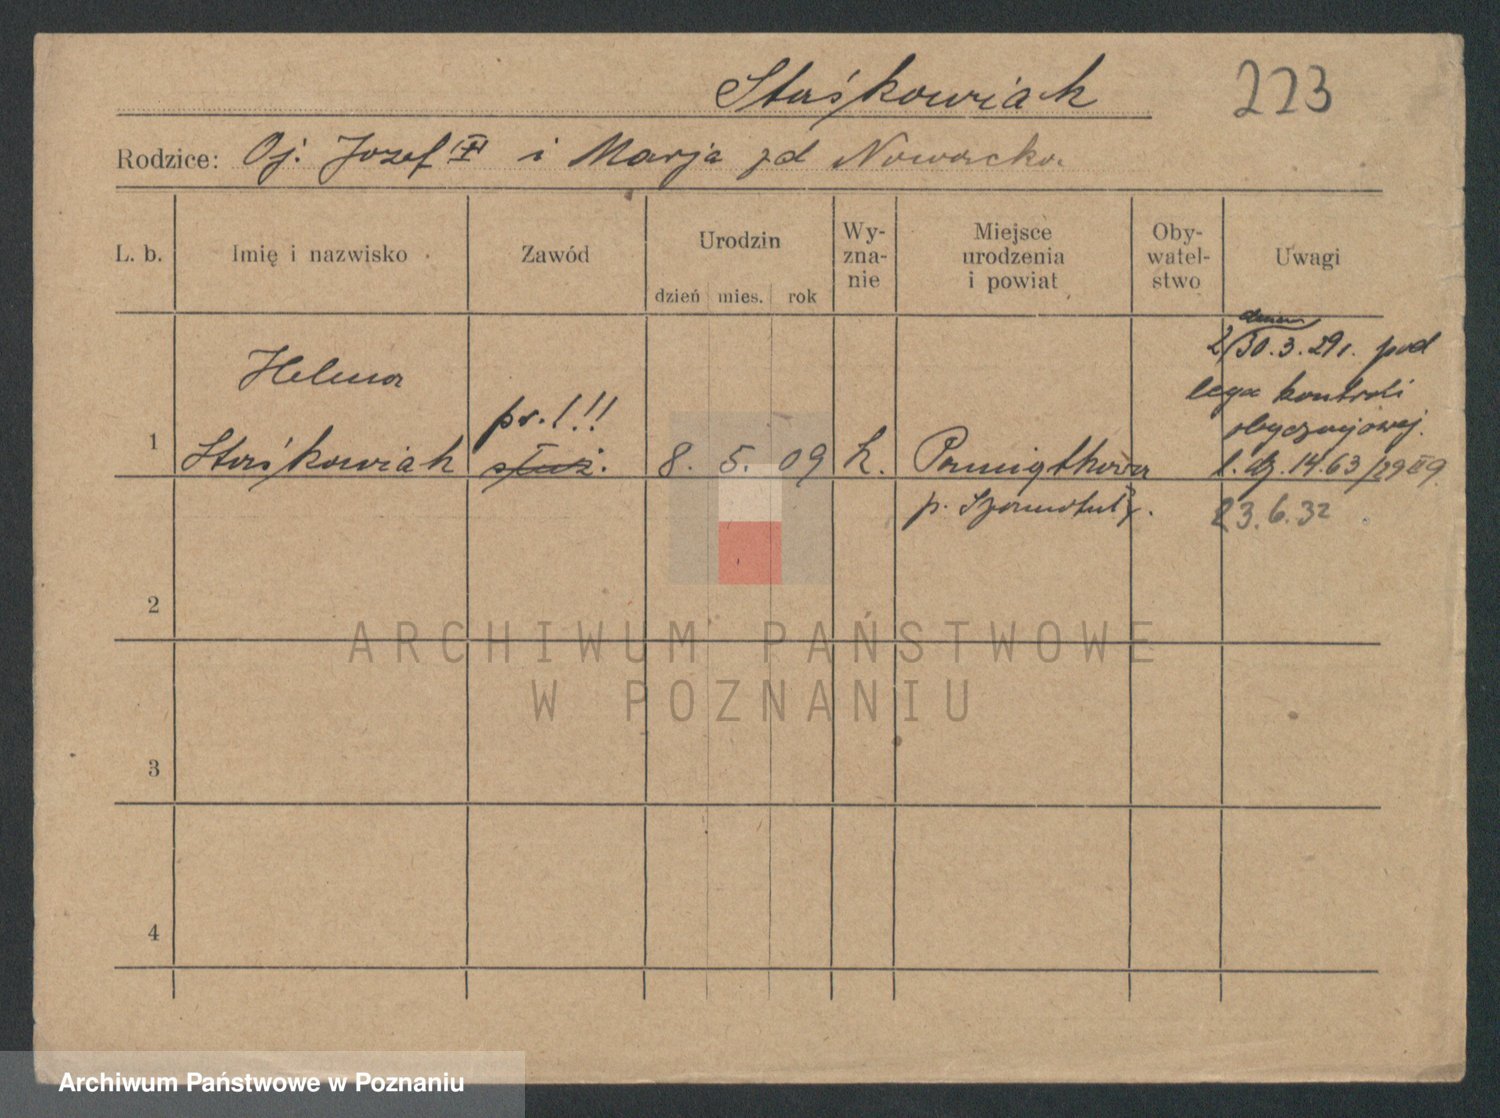 Staśkowiak
223
Rodzice: Oj. Jozef i Marja zd Nowacka
L. b.
Imię i nazwisko
Zawód
Urodzin
dzień mies. rok
Wy-
zna-
nie
Miejsce
urodzenia
i powiat
Oby-
watel-
stwo
Uwagi
1
Helena
Staśkowiak
pr.!!!
służ.
8. 5. 09
k.
Pamiątkowa
p. Szamotuły.
30.3.29r. pod
lega kontroli
obyczajowej.
l. dz. 1463/29
23.6.32
2
3
4
ARCHIWUM PAŃSTWOWE
W POZNANIU
Archiwum Państwowe w Poznaniu